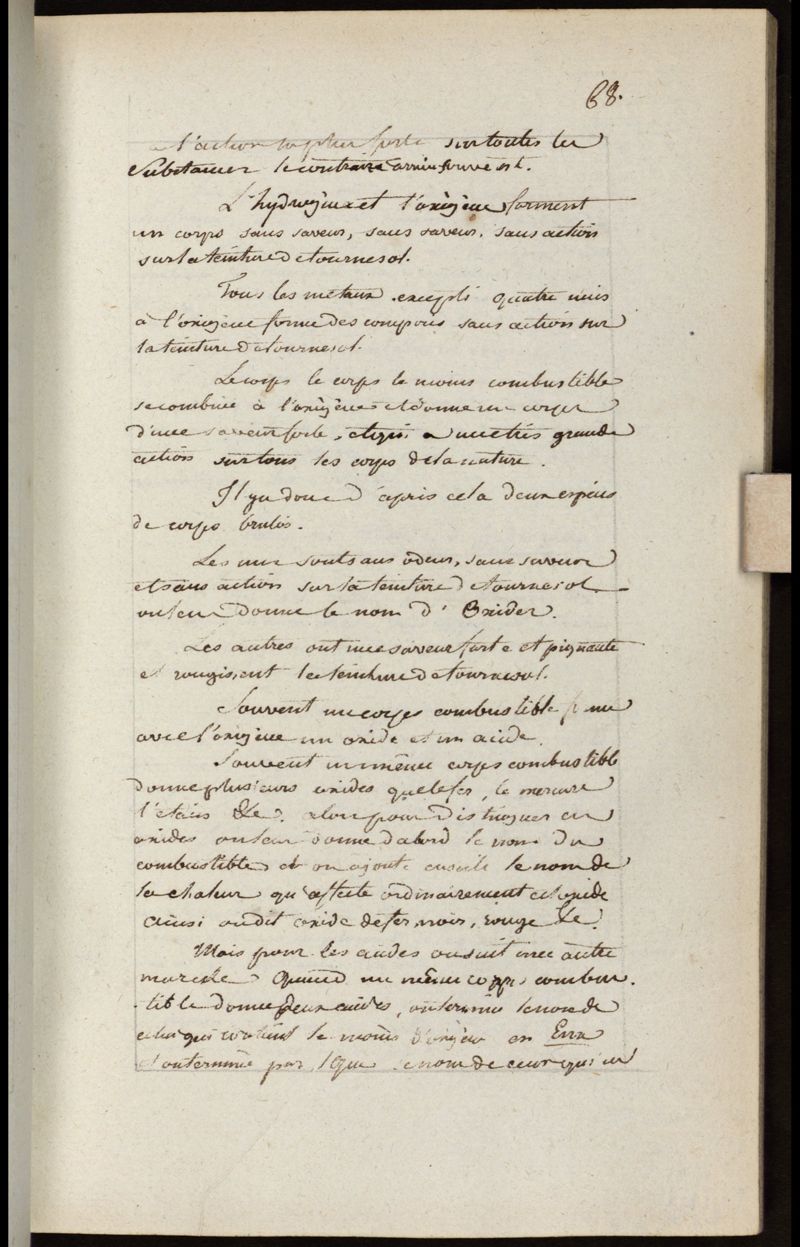 68.
l'action la plus forte sur toutes les
Substances le contraire arrive souvent.
L'hydrogène et l'oxigène forment
un corps sans saveur, sans saveur, sans action
sur la teinture de tournesol.
Tous les metaux excepté quatre unis
à l'oxigene forme des composés sans action sur
la teinture de tournesol.
Le corps le corps le moins combustible
se combine à l'oxigène et donne un corps
d'une saveur forte, et qui a une très grande
action sur tous les corps de la nature.
Il y a donc d'après cela deux espèces
de corps brulés.
Les uns sont sans odeur, sans saveur
et sans action sur la teinture de tournesol
on leur donne le nom d'Oxides.
Les autres ont une saveur forte et piquante
et rougissent la teinture de tournesol.
Souvent un corps combustible forme
avec l'oxigène un oxide et un acide.
Souvent un même corps combustible
donne plusieurs oxides que le fer, le mercure
l'etain &c. alors pour distinguer ces
oxides on leur donne dabord le nom du
combustible et on ajoute ensuite le nom de
la chaleur qu'affecte ordinairement cet oxide
ainsi on dit oxide de fer, noir, rouge &c.
Mais pour les acides on suit une autre
marche Quand un même corps combus-
tible donne deux acides, on termine le nom de
celui qui contient le moins d'oxigène en Eux
et on termine par Ique le nom de ceux qui en